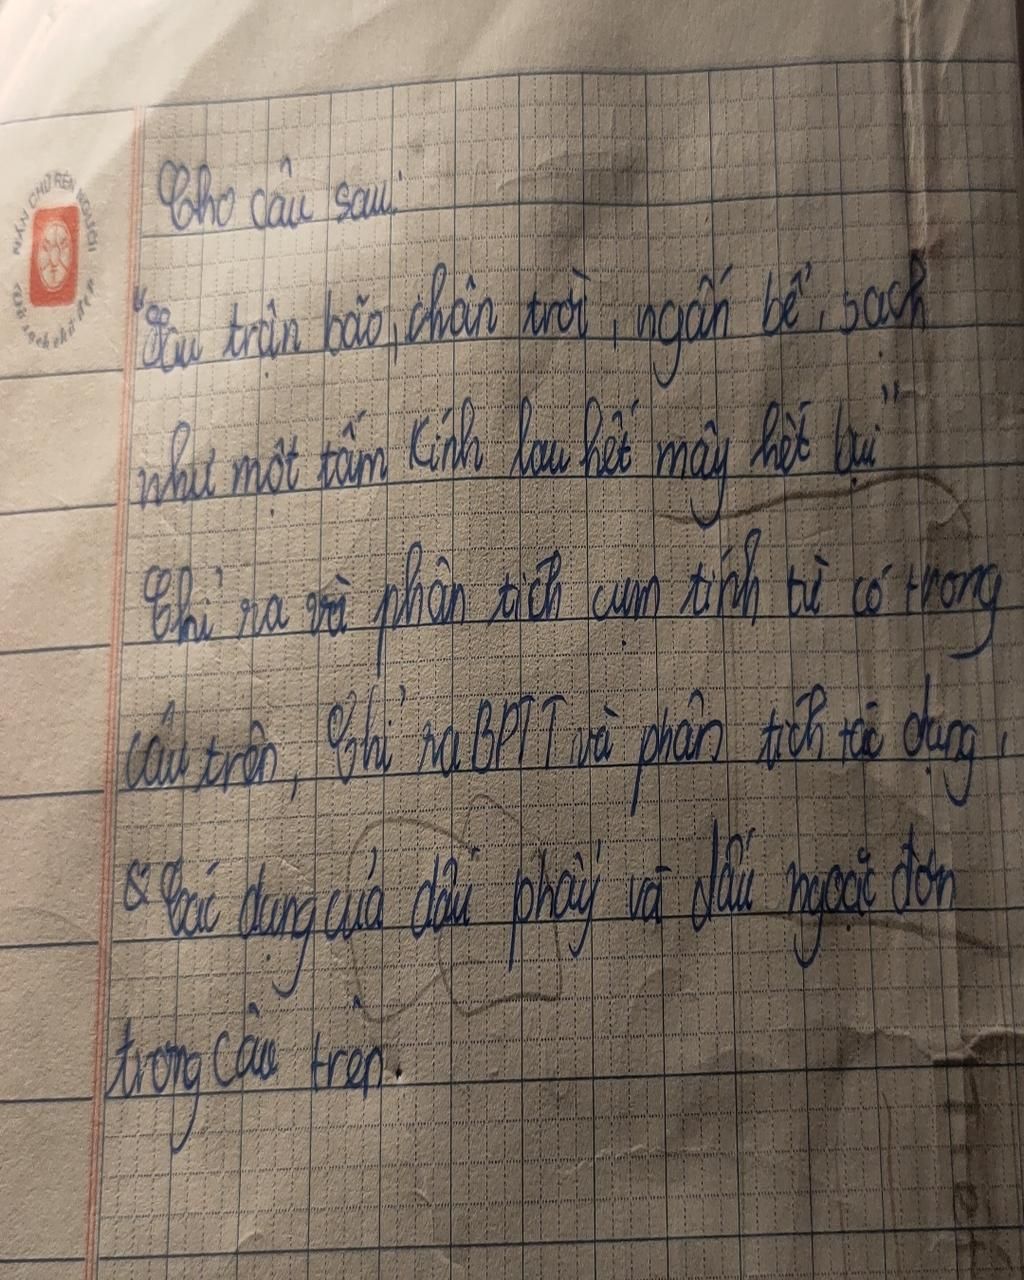 NÉT CHỮ RÈN NGƯỜI
Cho câu sau:
"Sau trận bão, chân trời, ngấn bể, sạch
như một tấm kính lau hết mây hết bụi"
Chỉ ra và phân tích cụm tính từ có trong
câu trên, Chỉ ra BPTT và phân tích tác dụng,
& Tác dụng của dấu phẩy và dấu ngoặc đơn
trong câu trên.